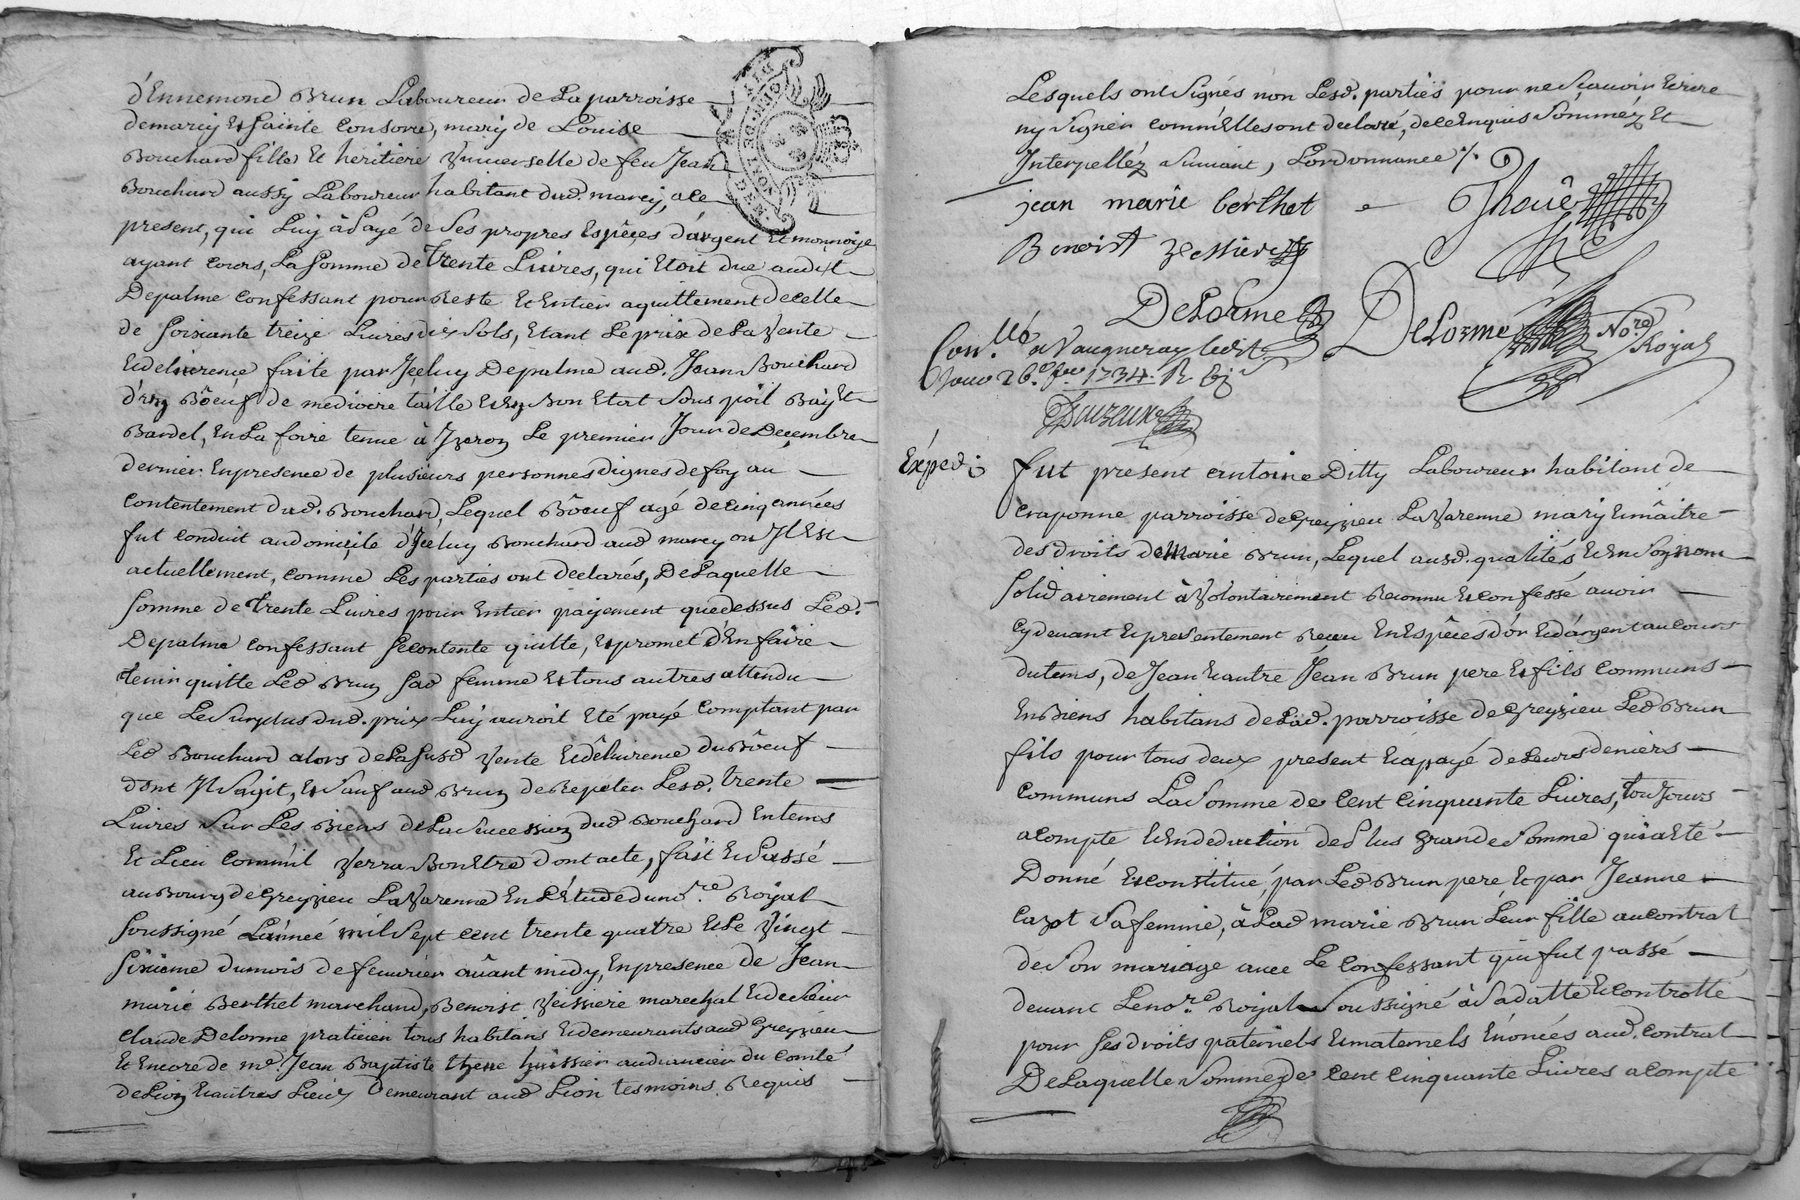 d'Ennemond Brun Laboureur de La parroisse
de marcy Et Sainte Consorce, mary de Louise
Bouchard fille Et heritiere Vniverselle de feu Jean
Bouchard aussy Laboureur habitant dud. marcy, a Ce
present, qui Luy à Payé de Ses propres Espêces d'argent Et monnoye
ayant Cours, La Somme de Trente Livres, qui Etoit due audit
Depalme Confessant pour Reste Et Entier aquittement de Celle
de Soixante treize Livres dix Sols, Etant Le prix de La Vente
Et delivrence faite par Jceluy Depalme aud. Jean Bouchard
d'un Bôeuf de mediocre taille Et En Bon Etat Sous poil Bay Et
Bardel, En La foire tenue à Jzeron Le premier Jour de Decembre
dernier En presence de plusieurs personnes dignes de foy au
Contentement dud. Bouchard, Lequel Bôeuf agé de Cinq années
fut Conduit au domicile d'Jceluy Bouchard aud marcy ou Jl Est
actuellement, Comme Les parties ont declarés, De Laquelle
Somme de trente Livres pour Entier payement que dessus Led.
Depalme Confessant Se Contente quitte, Et promet d'En faire
tenir quitte Led Brun Sad femme Et tous autres attendu
que Le Surplus dud. prix Luy auroit Eté payé Comptant par
Led Bouchard alors de La Susd Vente Et delivrence du Bôeuf
dont Jl S'agit, Et Sauf aud Brun de Repeter Lesd. trente
Livres Sur Les Biens de La Succession dud Bouchard En tems
Et Lieu Comm'il Verra Bon Etre dont acte, fait Et Passé
au Bourg de Greyzieu La Varenne En L'Etude du no.re Royal
Soussigné L'année mil Sept Cent trente quatre Et Le Vingt
Sixieme du mois de fevrier avant midy, En presence de Jean
marie Berthet marchand, Benoist Veissiere marechal Et de Sieur
Claude Delorme praticien tous habitans Et demeurants aud Greyzieu
Et Encore de me. Jean Baptiste thoue huissier audiancier du Comté
de Lion Et autres Lieux Demeurant aud Lion tesmoins Requis
Lesquels ont Signés non Lesd. parties pour ne Sçauoir Ecrire
ny Signer Comm'Elles ont declaré, de Ce Enquis Sommés Et
Interpellés Suivant L'ordonnance /.
jean marie berthet
Thoüe
Benoist Vessiere
DeLorme
DeLorme No.re Royal
Con.llé a Vaugneray ledit
Jour 26.e feu 1734. R
Exped.
fut present antoine Ditty Laboureur habitant de
Craponne parroisse de Greyzieu La Varenne mary Et maître
des droits de Marie Brun, Lequel ausd. qualités Et En Son nom
Solidairement à Volontairement Reconnu Et Confessé auoir
Cy devant Et presentement Receu En Espêces d'or Et d'argent au Cours
du tems, de Jean Et autre Jean Brun pere Et fils Communs
En Biens habitans de Lad. parroisse de Greyzieu Led Brun
fils pour tous deux present Et a payé de Leurs deniers
Communs La Somme de Cent Cinquante Livres, toujours
a Compte Et En deduction de Plus grande Somme qui a Eté
Donné Et Constitué, par Led Brun pere Et par Jeanne
Cazot Sa femme, à Lad marie Brun Leur fille au Contrat
de Son mariage auec Le Confessant qui fut passé
deuant Le no.re Royal Soussigné à Sa datte Et Controllé
pour Ses droits paternels Et maternels Enoncés aud. Contrat
De Laquelle Somme de Cent Cinquante Livres a Compte